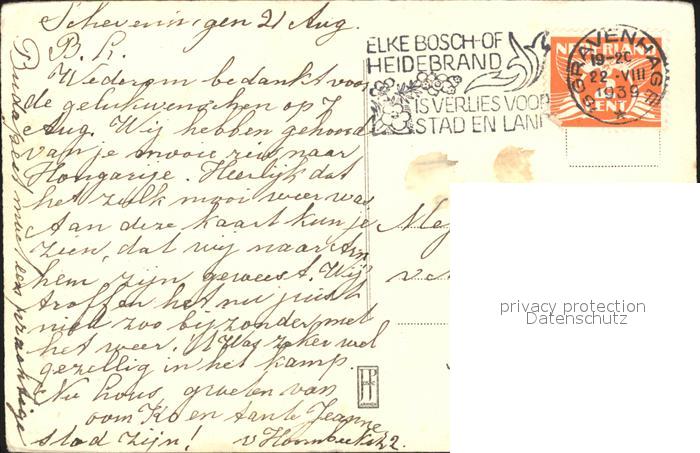 Scheveningen 21 Aug.
B. L.
Wederom bedankt voor
de gelukwenschen op 7
Aug. Wij hebben gehoord
van je mooie reis naar
Hongarije. Heerlijk dat
het zulk mooi weer was
Aan deze kaart kun je
zien, dat wij naar Arn
hem zijn geweest. Wij
troffen het nu juist
niet zoo bijzonder met
het weer. 't Was zeker wel
gezellig in het kamp.
Nu Lous, groeten van
oom Ko en tante Jeanne
Budapest moet een prachtige
stad zijn!
ELKE BOSCH-OF
HEIDEBRAND
IS VERLIES VOOR
STAD EN LAND
'S GRAVENHAGE
19-20
22-VIII
1939
NEDERLAND
CENT
Me
JP
privacy protection
Datenschutz